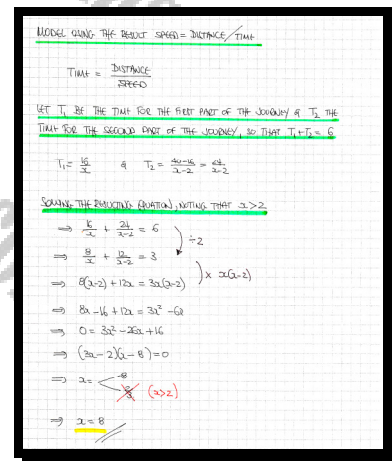 MODEL USING THE RESULT SPEED = DISTANCE/TIME
TIME = DISTANCE/SPEED
LET T₁ BE THE TIME FOR THE FIRST PART OF THE JOURNEY & T₂ THE
TIME FOR THE SECOND PART OF THE JOURNEY, SO THAT T₁+T₂ = 6
T₁ = 16/x & T₂ = (40-16)/(x-2) = 24/(x-2)
SOLVING THE RESULTING EQUATION, NOTING THAT x>2
⇒ 16/x + 24/(x-2) = 6
÷2
⇒ 8/x + 12/(x-2) = 3
× x(x-2)
⇒ 8(x-2) + 12x = 3x(x-2)
⇒ 8x - 16 + 12x = 3x² - 6x
⇒ 0 = 3x² - 26x + 16
⇒ (3x - 2)(x - 8) = 0
⇒ x = < 8
2/3 (x>2)
⇒ x = 8